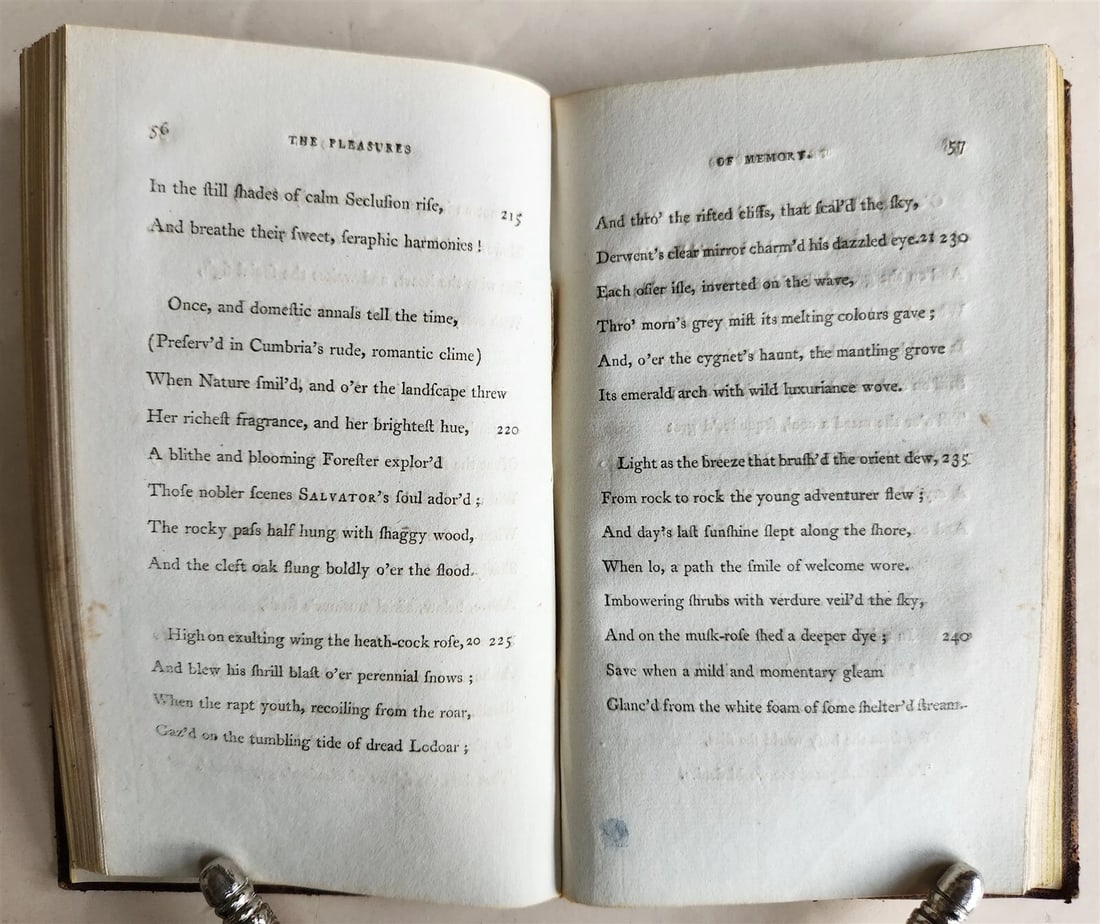 56
THE PLEASURES
In the ſtill ſhades of calm Secluſion riſe,
And breathe their ſweet, ſeraphic harmonies ! 215
Once, and domeſtic annals tell the time,
(Preſerv'd in Cumbria's rude, romantic clime)
When Nature ſmil'd, and o'er the landſcape threw
Her richeſt fragrance, and her brighteſt hue, 220
A blithe and blooming Foreſter explor'd
Thoſe nobler ſcenes SALVATOR's ſoul ador'd ;
The rocky paſs half hung with ſhaggy wood,
And the cleft oak flung boldly o'er the flood.
High on exulting wing the heath-cock roſe,20 225
And blew his ſhrill blaſt o'er perennial ſnows ;
When the rapt youth, recoiling from the roar,
Gaz'd on the tumbling tide of dread Lodoar ;
OF MEMORY.
57
And thro' the rifted cliffs, that ſcal'd the ſky,
Derwent's clear mirror charm'd his dazzled eye.21 230
Each oſier iſle, inverted on the wave,
Thro' morn's grey miſt its melting colours gave ;
And, o'er the cygnet's haunt, the mantling grove
Its emerald arch with wild luxuriance wove.
Light as the breeze that bruſh'd the orient dew, 235
From rock to rock the young adventurer flew ;
And day's laſt ſunſhine ſlept along the ſhore,
When lo, a path the ſmile of welcome wore.
Imbowering ſhrubs with verdure veil'd the ſky,
And on the muſk-roſe ſhed a deeper dye ; 240
Save when a mild and momentary gleam
Glanc'd from the white foam of ſome ſhelter'd ſtream.